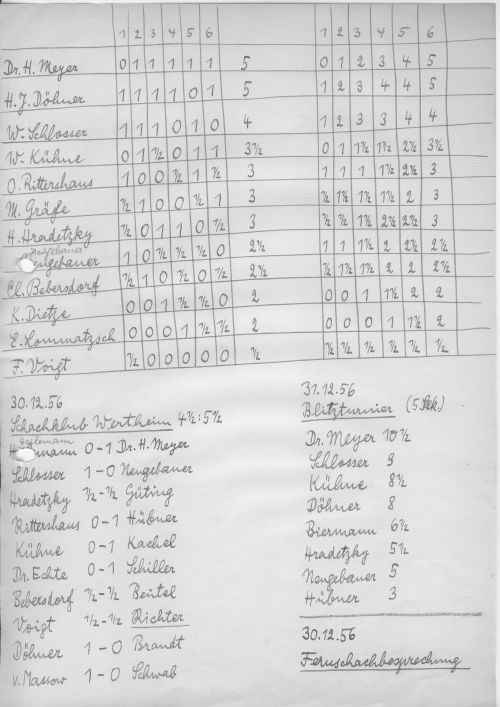 1 2 3 4 5 6 1 2 3 4 5 6
Dr. H. Meyer 0 1 1 1 1 1 5 0 1 2 3 4 5
H. J. Döhner 1 1 1 1 0 1 5 1 2 3 4 4 5
W. Schlosser 1 1 1 0 1 0 4 1 2 3 3 4 4
W. Kühne 0 1 ½ 0 1 1 3½ 0 1 1½ 1½ 2½ 3½
O. Rittershaus 1 0 0 ½ 1 ½ 3 1 1 1 1½ 2½ 3
M. Gräfe ½ 1 0 0 ½ 1 3 ½ 1½ 1½ 1½ 2 3
H. Hradetzky ½ 0 1 1 0 ½ 3 ½ ½ 1½ 2½ 2½ 3
Neugebauer 1 0 ½ ½ ½ 0 2½ 1 1 1½ 2 2½ 2½
Cl. Bebersdorf ½ 1 0 ½ 0 ½ 2½ ½ 1½ 1½ 2 2 2½
K. Dietze 0 0 1 ½ ½ 0 2 0 0 1 1½ 2 2
E. Kommatzsch 0 0 0 1 ½ ½ 2 0 0 0 1 1½ 2
F. Voigt ½ 0 0 0 0 0 ½ ½ ½ ½ ½ ½ ½
30.12.56
Schachklub Wertheim 4½:5½
0-1 Dr. H. Meyer
Schlosser 1-0 Neugebauer
Hradetzky ½-½ Güting
Rittershaus 0-1 Hübner
Kühne 0-1 Kachel
Dr. Echte 0-1 Schiller
Bebersdorf ½-½ Beutel
Voigt ½-½ Richter
Döhner 1-0 Brandt
v. Massow 1-0 Schwab
31.12.56
Blitzturnier (5 Sek.)
Dr. Meyer 10½
Schlosser 9
Kühne 8½
Döhner 8
Biermann 6½
Hradetzky 5½
Neugebauer 5
Hübner 3
30.12.56
Fernschachbesprechung